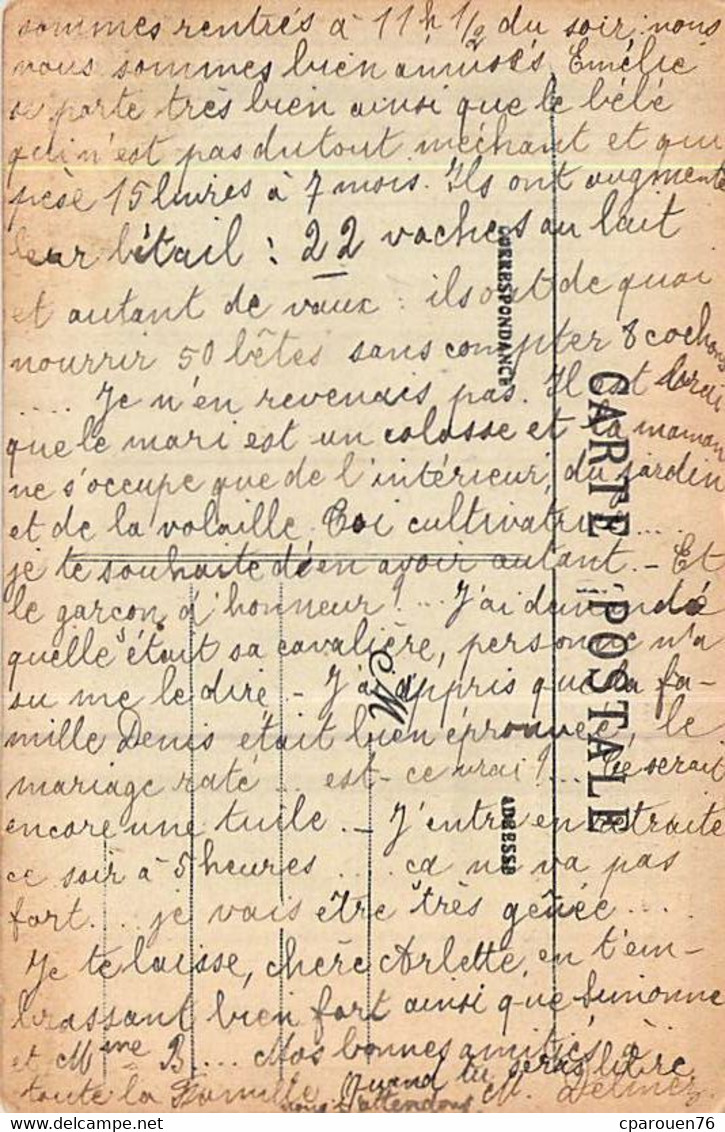 sommes rentrés à 11h 1/2 du soir, nous
nous sommes bien amusés. Emélie
se porte très bien ainsi que le bébé
qui n'est pas du tout méchant et qui
pèse 15 livres à 7 mois. Ils ont augmenté
leur bétail : 22 vaches au lait
et autant de vaux : ils ont de quoi
nourrir 50 bêtes sans compter 8 cochons
.... Je n'en revenais pas. Il est vrai
que le mari est un colosse et la maman
ne s'occupe que de l'intérieur, du jardin
et de la volaille. Toi cultivatrice ....
je te souhaite d'en avoir autant. - Et
le garçon d'honneur? ... J'ai demandé
quelle était sa cavalière, personne n'a
su me le dire - J'ai appris que la fa-
mille Denis était bien éprouvée, le
mariage raté ... est-ce vrai? ... Ce serait
encore une tuile. - J'entre en retraite
ce soir à 5 heures .... ça ne va pas
fort... je vais être très gênée ....
Je te laisse, chère Arlette, en t'em-
brassant bien fort ainsi que Simonne
et Mme B... Mes bonnes amitiés à
toute la Famille. Quand tu seras libre
nous t'attendons. M. 
CORRESPONDANCE
CARTE POSTALE
M
ADRESSE
© cparouen76